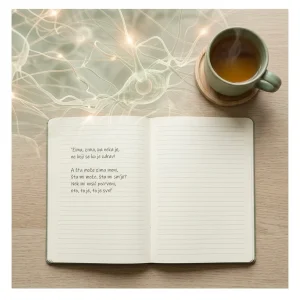 "Zima, zima, pa neka je,
ne boji se ko je zdrav!
A šta može zima meni,
šta mi može, šta mi smije?
Nek mi nosić pocrveni,
eto, to je, to je sve!"